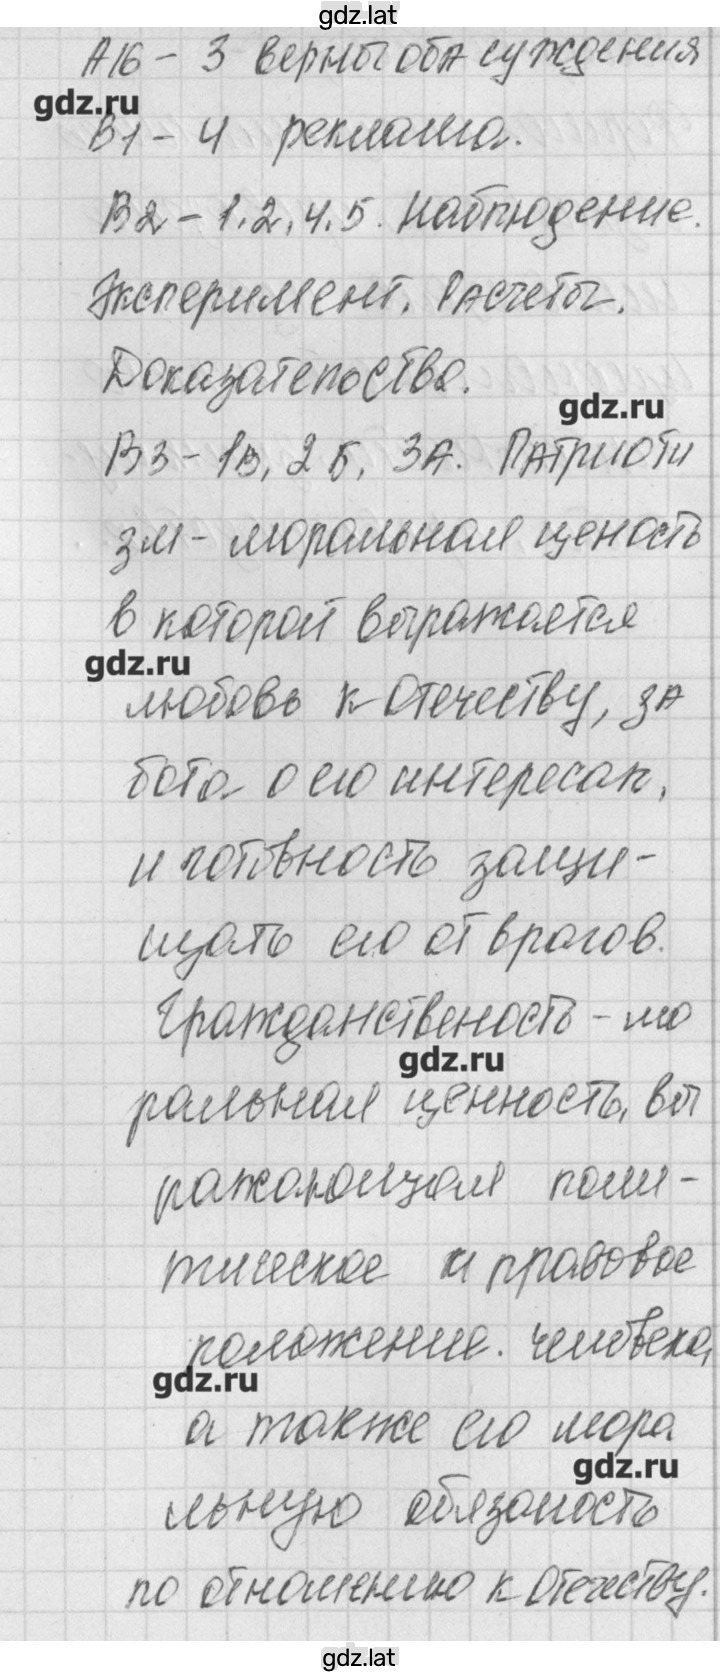 gdz.lat
А16 - 3 верны оба суждения
gdz.ru
В1 - 4 реклама.
В2 - 1.2.4.5. Наблюдение.
Эксперимент. Расчеты.
Доказательства.
gdz.ru
В3 - 1В, 2Б, 3А. Патриоти
зм - моральная ценость
в которой выражается
gdz.ru
любовь к Отечеству, за
бота о его интересах,
и готовность защи-
щать его от врагов.
Гражданственость - мо
gdz.ru
ральная ценность, вы
ражающая поли-
тическое и правовое
положение. человека,
gdz.ru
а также его мора
gdz.ru
льную обязаность
по отношению к Отечеству.
gdz.lat